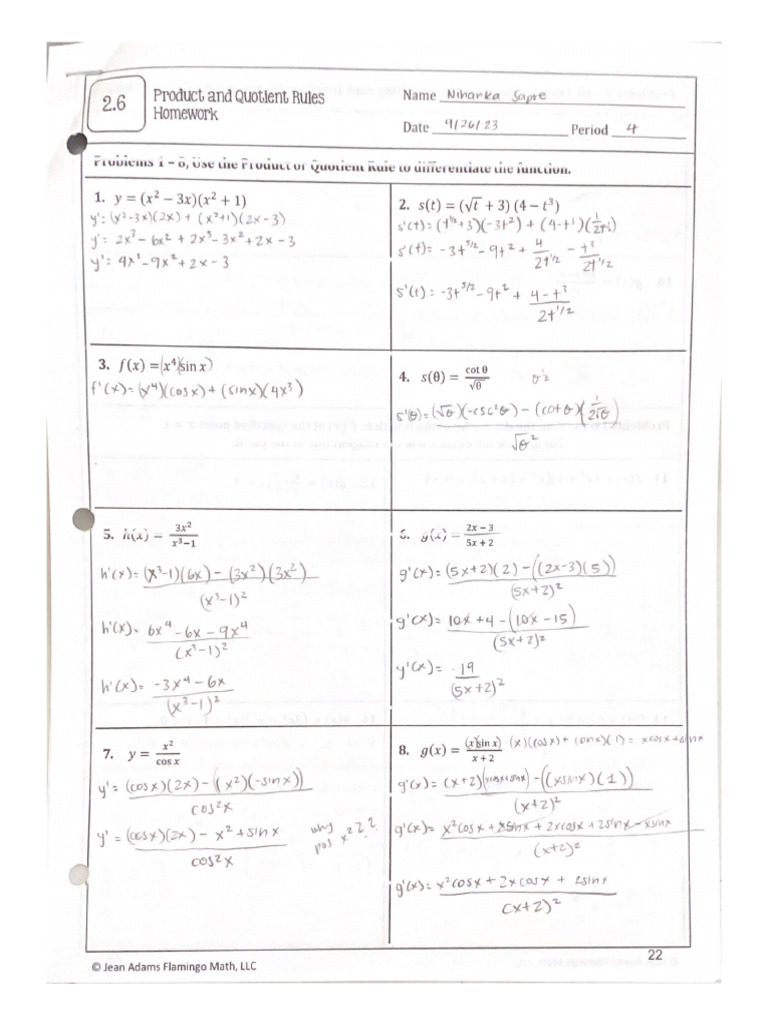 2.6
Product and Quotient Rules
Homework
Name Niharika Sapre
Date 9/26/23 Period 4
Problems 1 – 8, Use the Product or Quotient Rule to differentiate the function.
1. y = (x² − 3x)(x² + 1)
y': (x²-3x)(2x) + (x²+1)(2x-3)
y': 2x³ - 6x² + 2x³ - 3x² + 2x - 3
y': 4x³ - 9x² + 2x - 3
2. s(t) = (√t + 3)(4 − t³)
s'(t) = (t^1/2 + 3)(-3t²) + (4-t³)
s'(t): -3t^5/2 - 9t² + 4/2t^1/2 - t³/2t^1/2
s'(t): -3t^5/2 - 9t² + 4-t³/2t^1/2
3. f(x) = (x⁴)(sin x)
f'(x) = (x⁴)(cos x) + (sinx)(4x³)
4. s(θ) = cot θ/√θ
s'(θ) = (√θ)(-csc²θ) - (cotθ)(1/2√θ)
√θ²
5. h(x) = 3x²/x³−1
h'(x) = (x³-1)(6x) - (3x²)(3x²)
(x³-1)²
h'(x) = 6x⁴ - 6x - 9x⁴
(x³-1)²
h'(x) = -3x⁴ - 6x
(x³-1)²
6. g(x) = 2x − 3/5x + 2
g'(x) = (5x+2)(2) - ((2x-3)(5))
(5x+2)²
g'(x) = 10x + 4 - (10x - 15)
(5x+2)²
y'(x) = 19
(5x+2)²
7. y = x²/cos x
y' = (cosx)(2x) - ((x²)(-sinx))
cos²x
y' = (cosx)(2x) - x² + sinx
cos²x
why
pos x² ? ?
8. g(x) = (x)(sin x)/x + 2 (x)(cosx) + (sinx)(1) = xcosx + sinx
g'(x) = (x+2)(xcosx+sinx) - ((xsinx)(1))
(x+2)²
g'(x) = x²cosx + xsinx + 2xcosx + 2sinx - xsinx
(x+2)²
g'(x) = x²cosx + 2xcosx + 2sinx
(x+2)²
22
© Jean Adams Flamingo Math, LLC